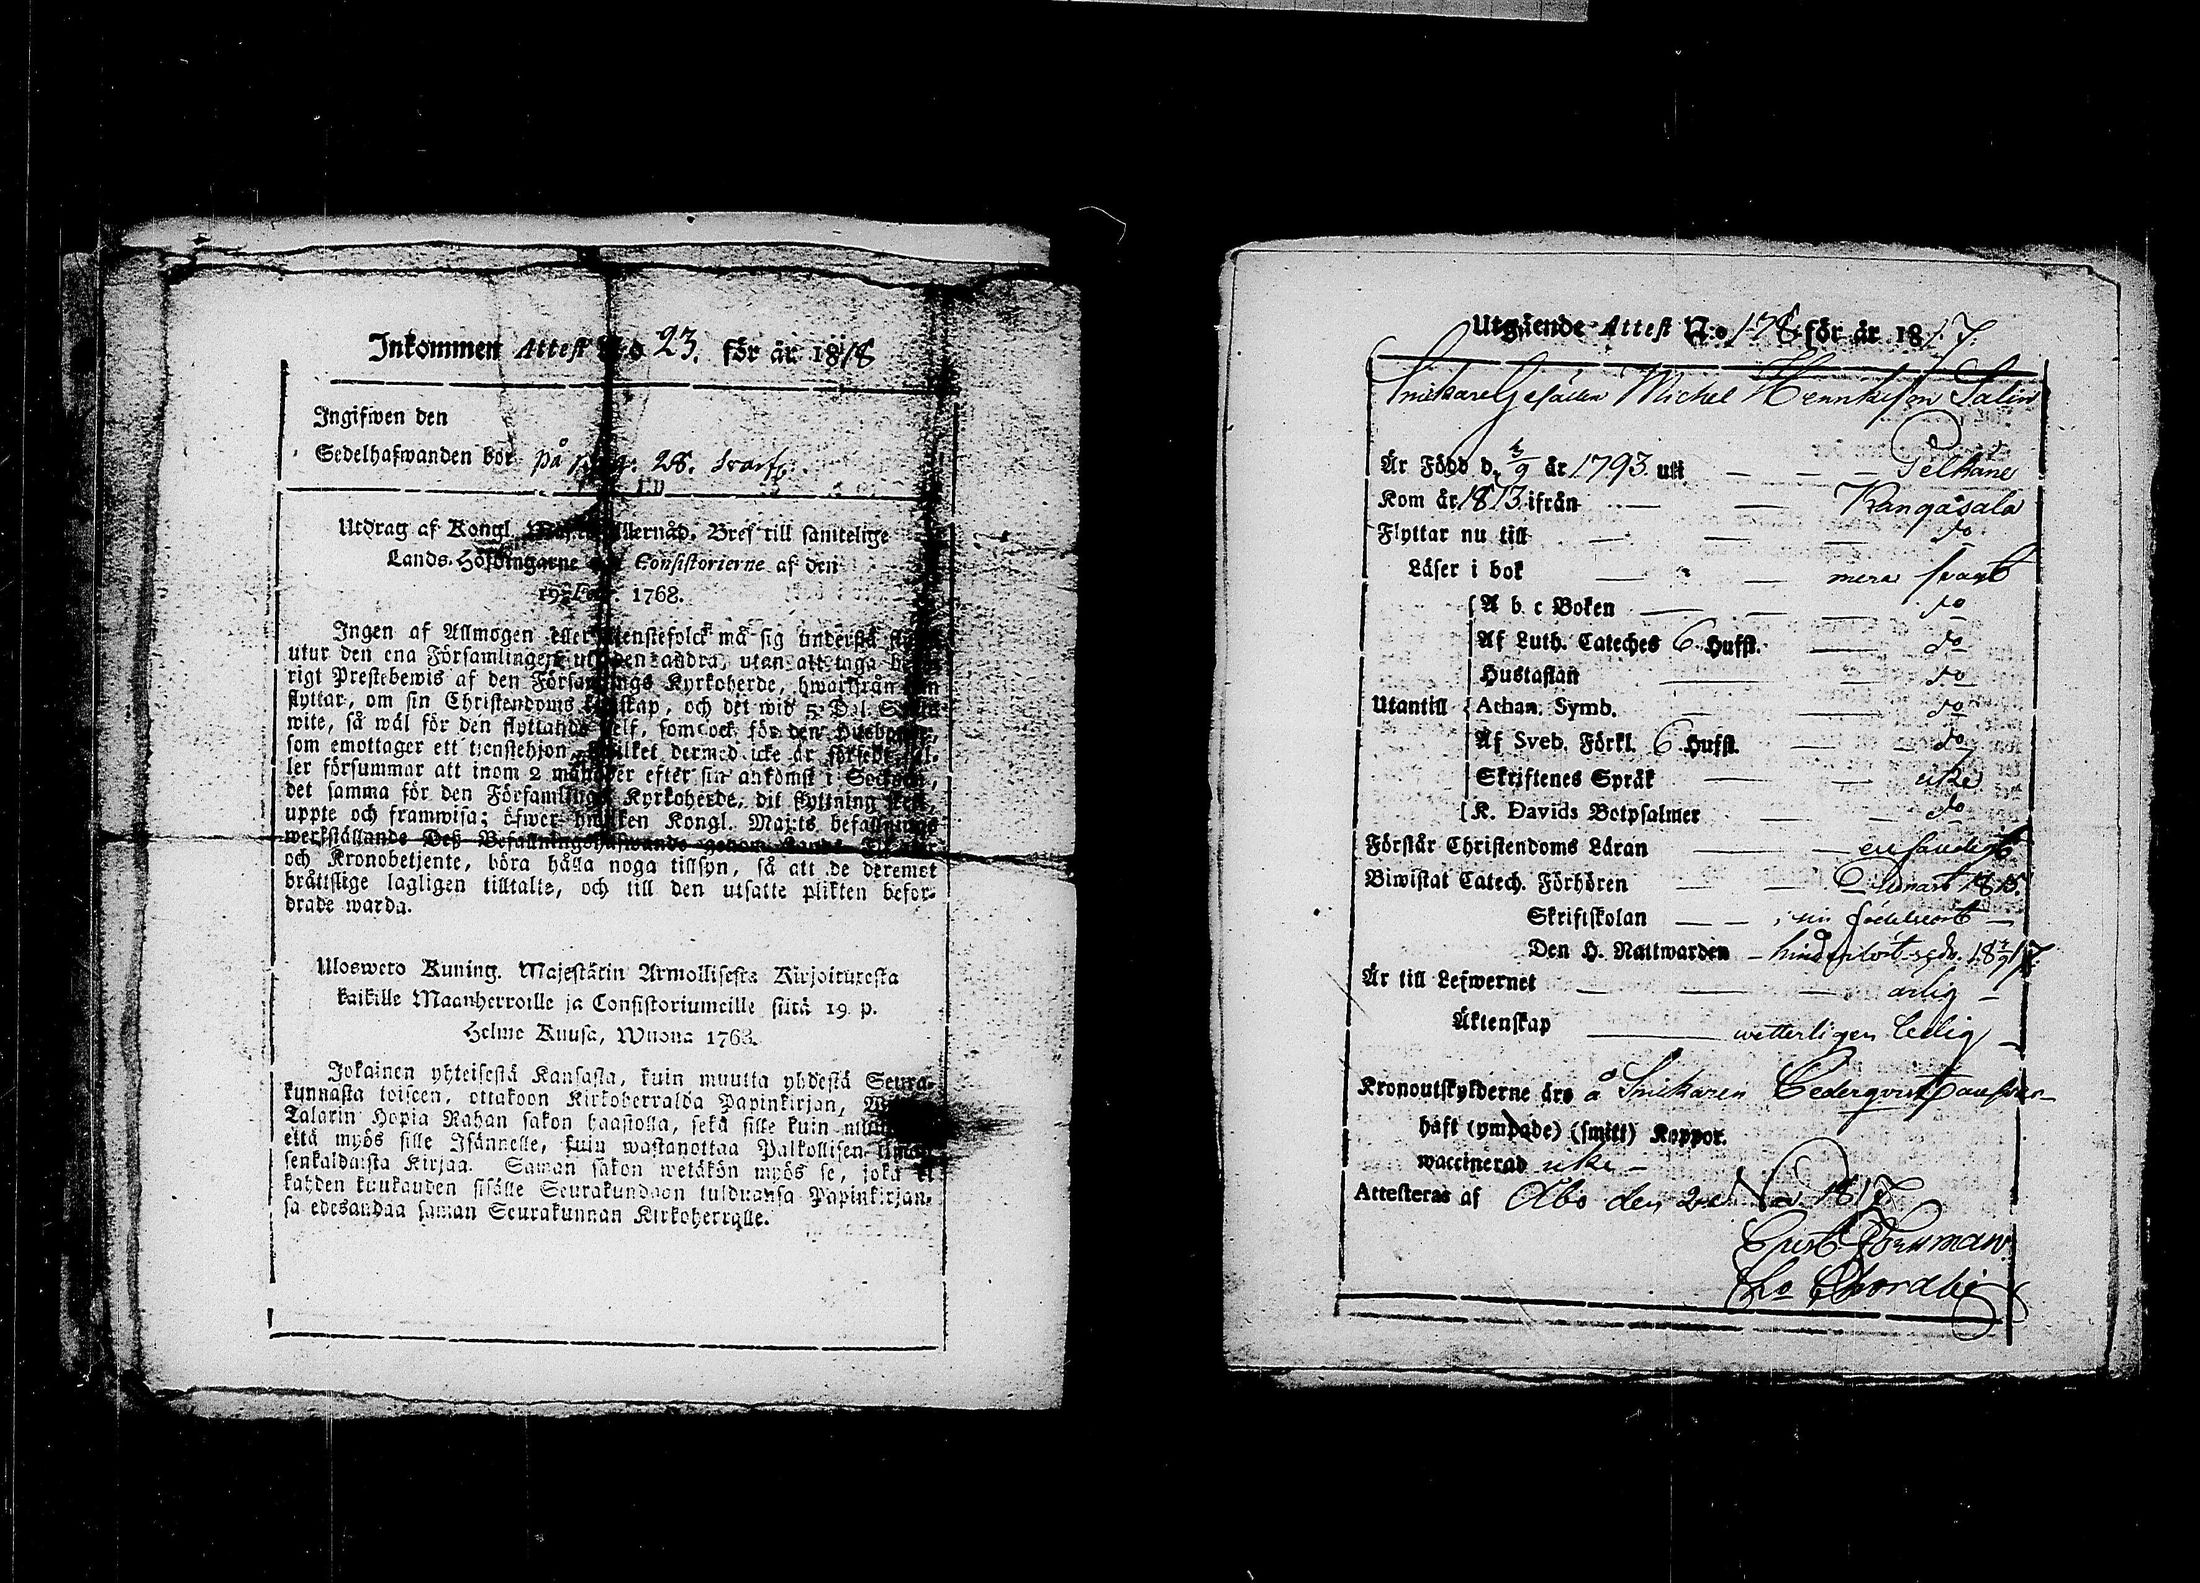 Inkommen Attest N:o 23. för år 1818
Ingifwen den
Sedelhafwanden bor på pag: 28.
Utdrag af Kongl. Maj:ts Allernåd. Bref till samtelige
Lands-Höfdingarne och Consistorierne af den
19 Febr. 1768.
Ingen af Allmogen eller tienstefolck må sig understå flytta
utur den ena Församlingen uti den andra, utan att taga behö-
rigt Prestebewis af den Församlings Kyrkoherde, hwarifrån han
flyttar, om sin Christendoms kunskap, och det wid 5 Dal. S:mts
wite, så wäl för den flyttande self, som ock för den Husbonde,
som emottager ett tienstehjon, hwilket dermed icke är försedt, el-
ler försummar att inom 2 månader efter sin ankomst i Socknen,
det samma för den Församlings Kyrkoherde, dit flyttning skedt,
uppte och framwisa; öfwer hwilken Kongl. Maj:ts befallnings
werkställande Deß Befallningshafwande genom Lands Fiscaler
och Kronobetjente, böra hålla noga tillsyn, så att de deremot
bråttslige lagligen tilltalte, och till den utsatte plikten befor-
drade warda.
Uloswero Kuning. Majestätin Armollisesta Kirjoituxesta
kaikille Maanherroille ja Consistoriumeille siitä 19 p.
Helme Kuusa, Wuona 1768.
Jokainen yhteisestä Kansasta, kuin muutta yhdestä Seura-
kunnasta toiseen, ottakoon Kirkoherralda Papinkirjan,
Talarin Hopia Rahan sakon haastolla, sekä sille kuin muutta
että myös sille Isännelle, kuin wastanottaa Palkollisen ilman
senkalduista Kirjaa. Saman sakon wetäkön myös se, joka ei
kahden kuukauden sisälle Seurakundaan tulduansa Papinkirjan-
sa edesandaa saman Seurakunnan Kirkoherralle.
Utgående Attest N:o 178 för år 1817.
Snickare Gesällen Michel Hennricsson Salin
Är Född d. 3/9 år 1793. uti Pelkäne
Kom år 1813 ifrån Kangasala
Flyttar nu till do
Läser i bok mera svagt
A b c Boken do
Af Luth. Cateches 6 Hufst. do
Hustaflan do
Utantill Athan. Symb. do
Af Sveb. Förkl. 6 Hufst. do
Skriftenes Språk icke
K. Davids Botpsalmer do
Förstår Christendoms Läran enfaldigt
Biwistat Catech. Förhören 1815.
Skriftskolan i sin födelseort
Den H. Nattwarden hinderlöst sedn. 18 3/9 17.
Är till Lefwernet ärlig
Äktenskap wetterligen ledig
Kronoutskylderne äro å Snickaren Cederqvist
haft (ympade) (smitt) Koppor.
waccinerad icke
Attesteras af Åbo den 2 Nov. 1817